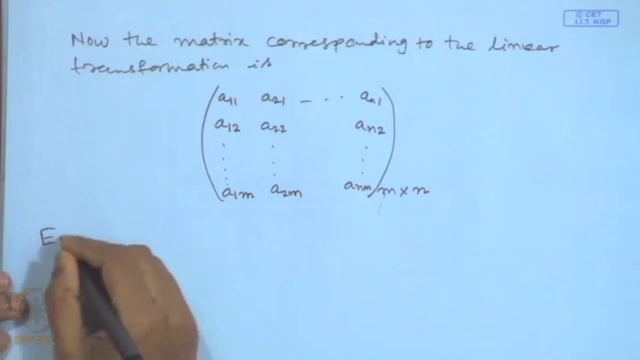 © CET
I.I.T. KGP
Now the matrix corresponding to the linear
transformation is
a11 a21 - - ·· an1
a12 a22 an2
⋮ ⋮ ⋮
a1m a2m anm m×n
E